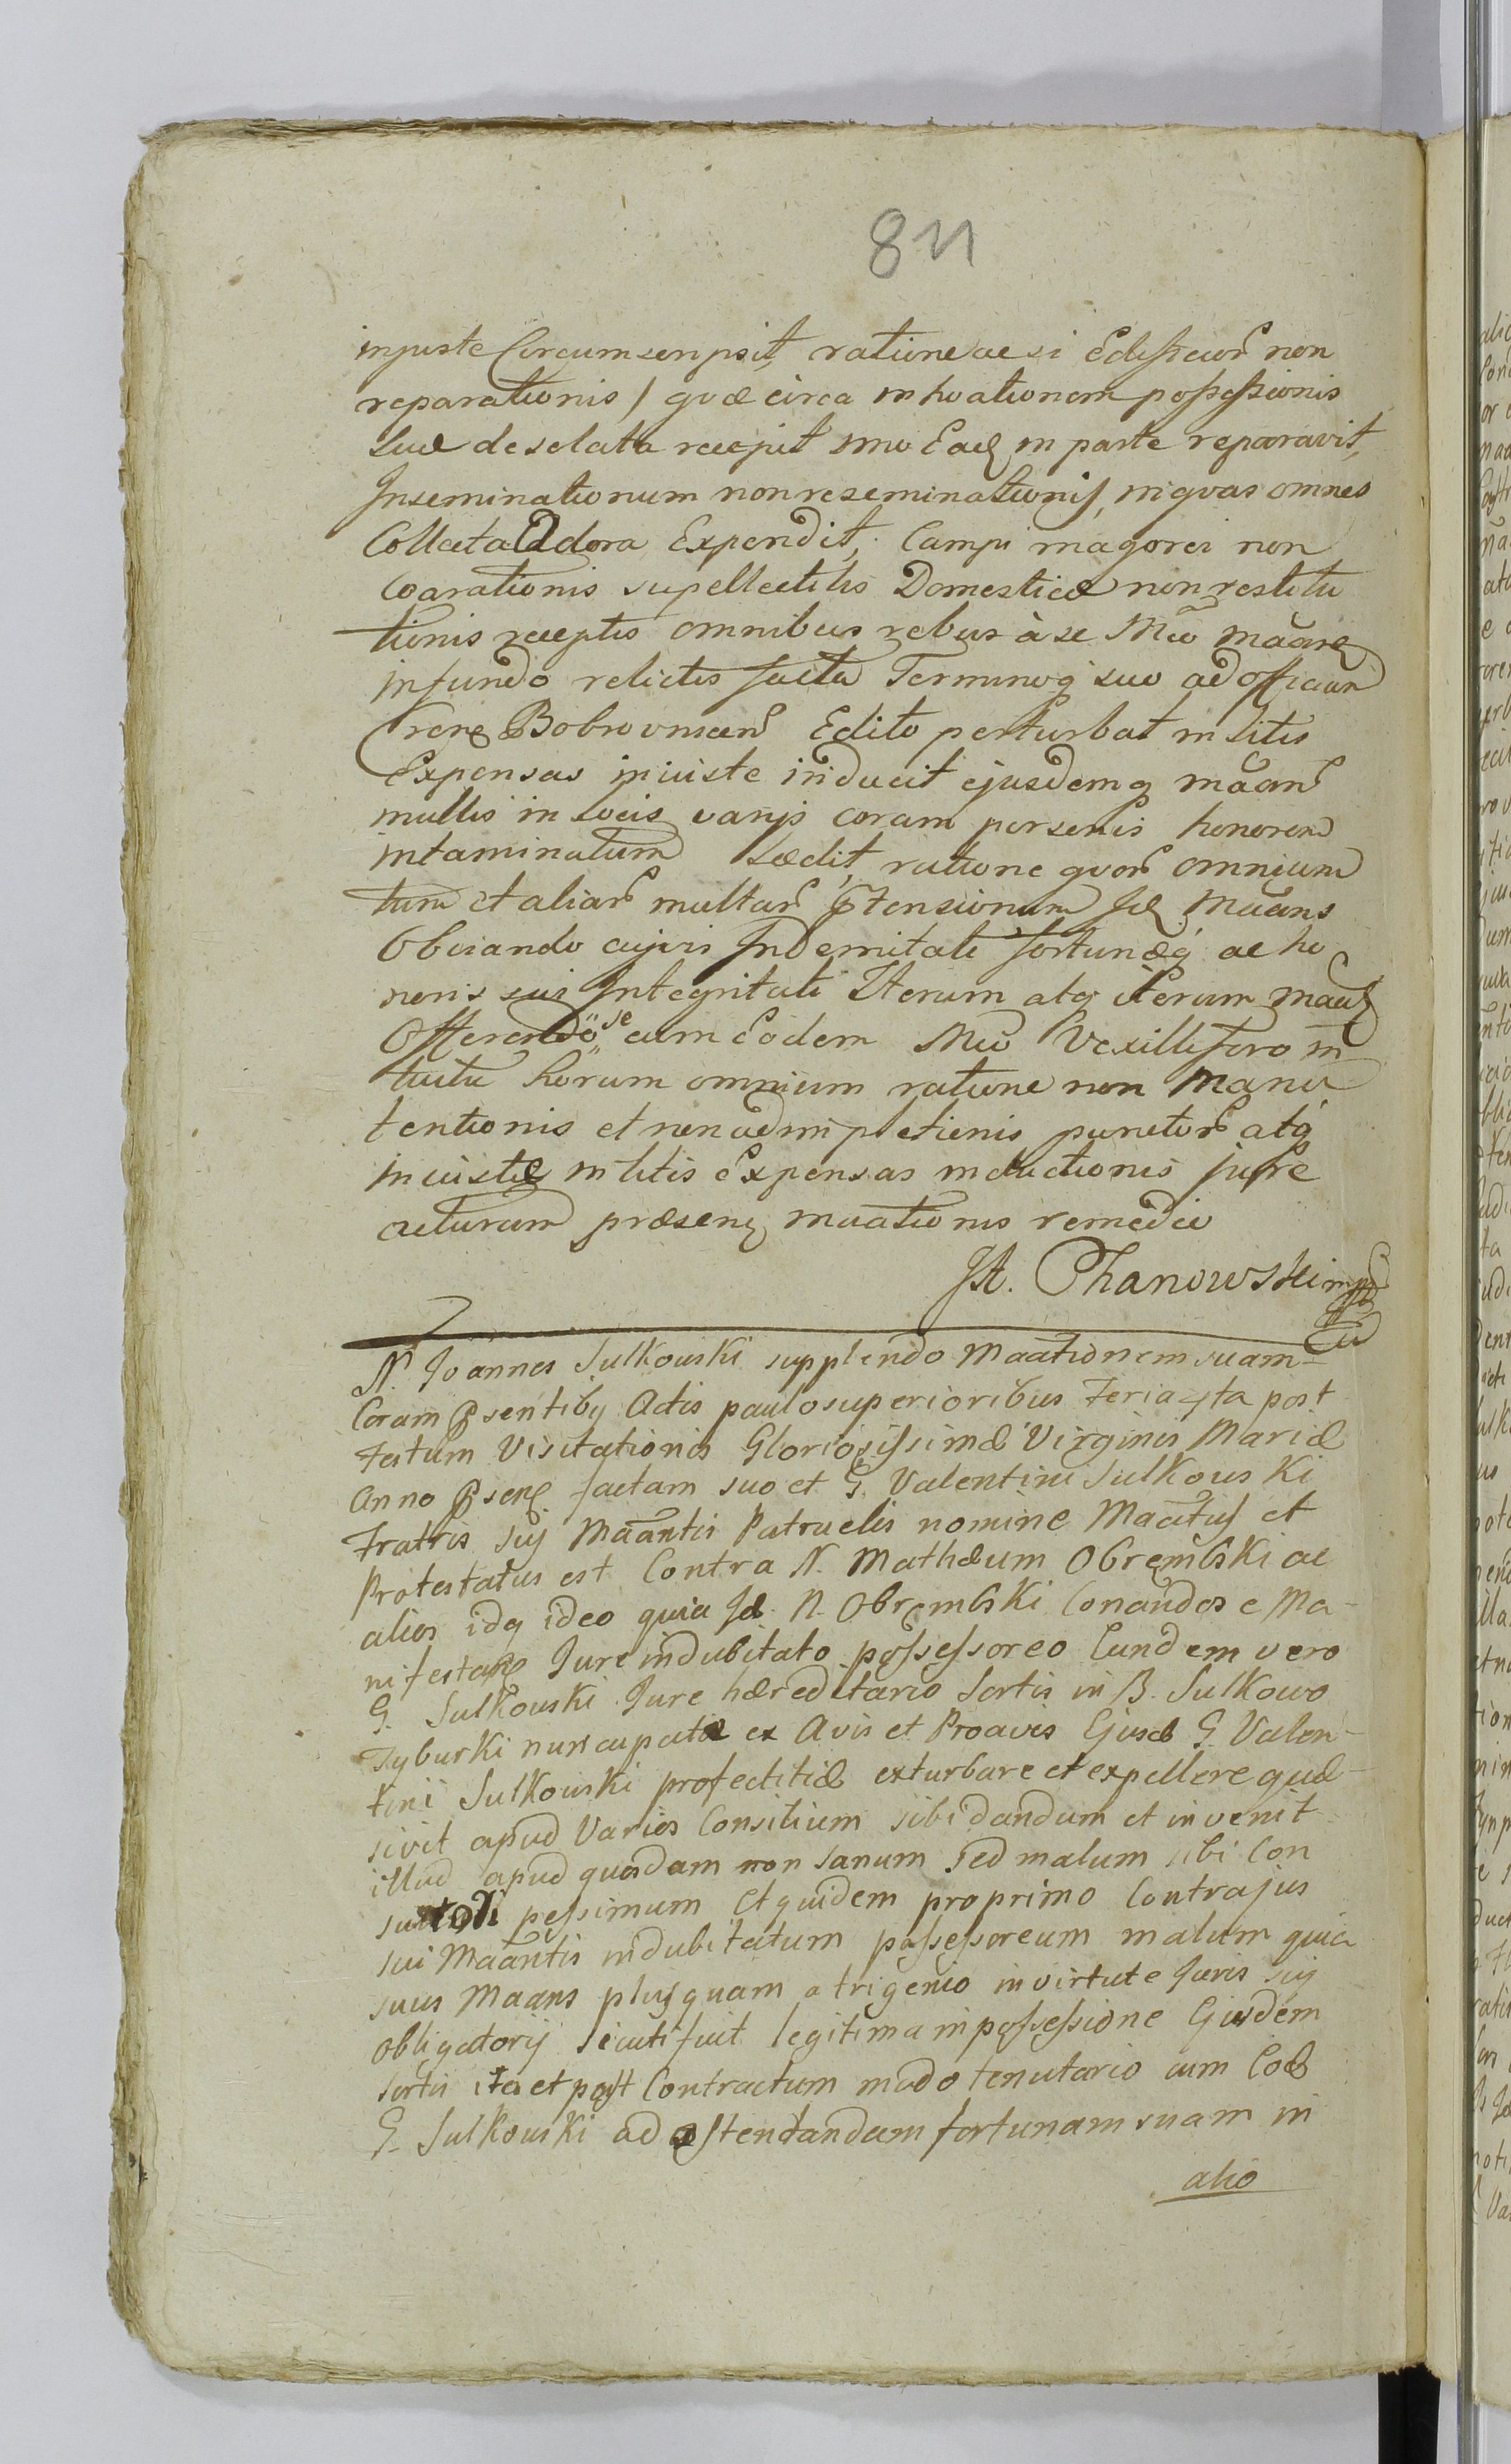 811
injuste Circumscripsit, ratione ac si Edificior non
reparationis / quæ circa inhoationem possessionis
suæ desolata recepit imo Eaq in parte reparavit,
Inseminationum non reseminationis, in quas omnes
Collecta Adora Expendit, Campi magorei non
Coarationis supellectilis Domesticæ non restitu
tionis receptis omnibus rebus à se Mco māare
in fundo relictis facta Terminoq suo ad officium
Crene Bobrovnicen Edito perturbat in litis
Expensas iniuste inducit ejusdemq māan
multis in locis varijs coram personis honorem
intaminatum Lædit, ratione quor omnium
tum et aliar multar ptensionum Id Māans
Obviando cujvis Indemnitati fortunæq ac ho
noris sui Integritati Iterum atq iterum maat
Offerendo se cum eodem Mco Vexillifero in
tuitu horum omnium ratione non Manu
tentionis et non adimpletionis punctor atq
iniustæ in litis Expensas inductionis jure
acturum præsenq maationis remedio
St. Chanowski mp
N. Joannes Sulkowski supplendo Maationem suam
Coram psentibq Actis paulo superioribus Feria 4ta post
Festum Visitationis Gloriosissimæ Virginis Mariæ
Anno psenq factam suo et G. Valentini Sulkowski
Fratris Sui Maantis Patruelis nomine Maatus et
Protestatus est Contra N. Mathæum Obrembski ac
alios idq ideo quia Id. N. Obrembski Conandos e Ma-
nifestanq Jure indubitato possessoreo Eundem vero
G. Sulkowski Jure hæreditario Sortis in B. Sulkowo
Tyburki nuncupatæ ex Avis et Proavis Ejusd G. Valen-
tini Sulkowski profectitiæ exturbare et expellere quæ-
sivit apud Varios Consilium sibi dandum et invenit
illud apud quosdam non sanum sed malum sibi Con
sultori pessimum Et quidem pro primo Contra jus
sui Maantis indubitatum possessoreum malum quia
suus Maans plusquam a trigenio in virtute Juris sui
obligatorij sicuti fuit legitima in possessione Ejusdem
sortis ita et post Contractum modo tenutario cum Eod
G. Sulkowski ad ostentandam fortunam suam in
alio